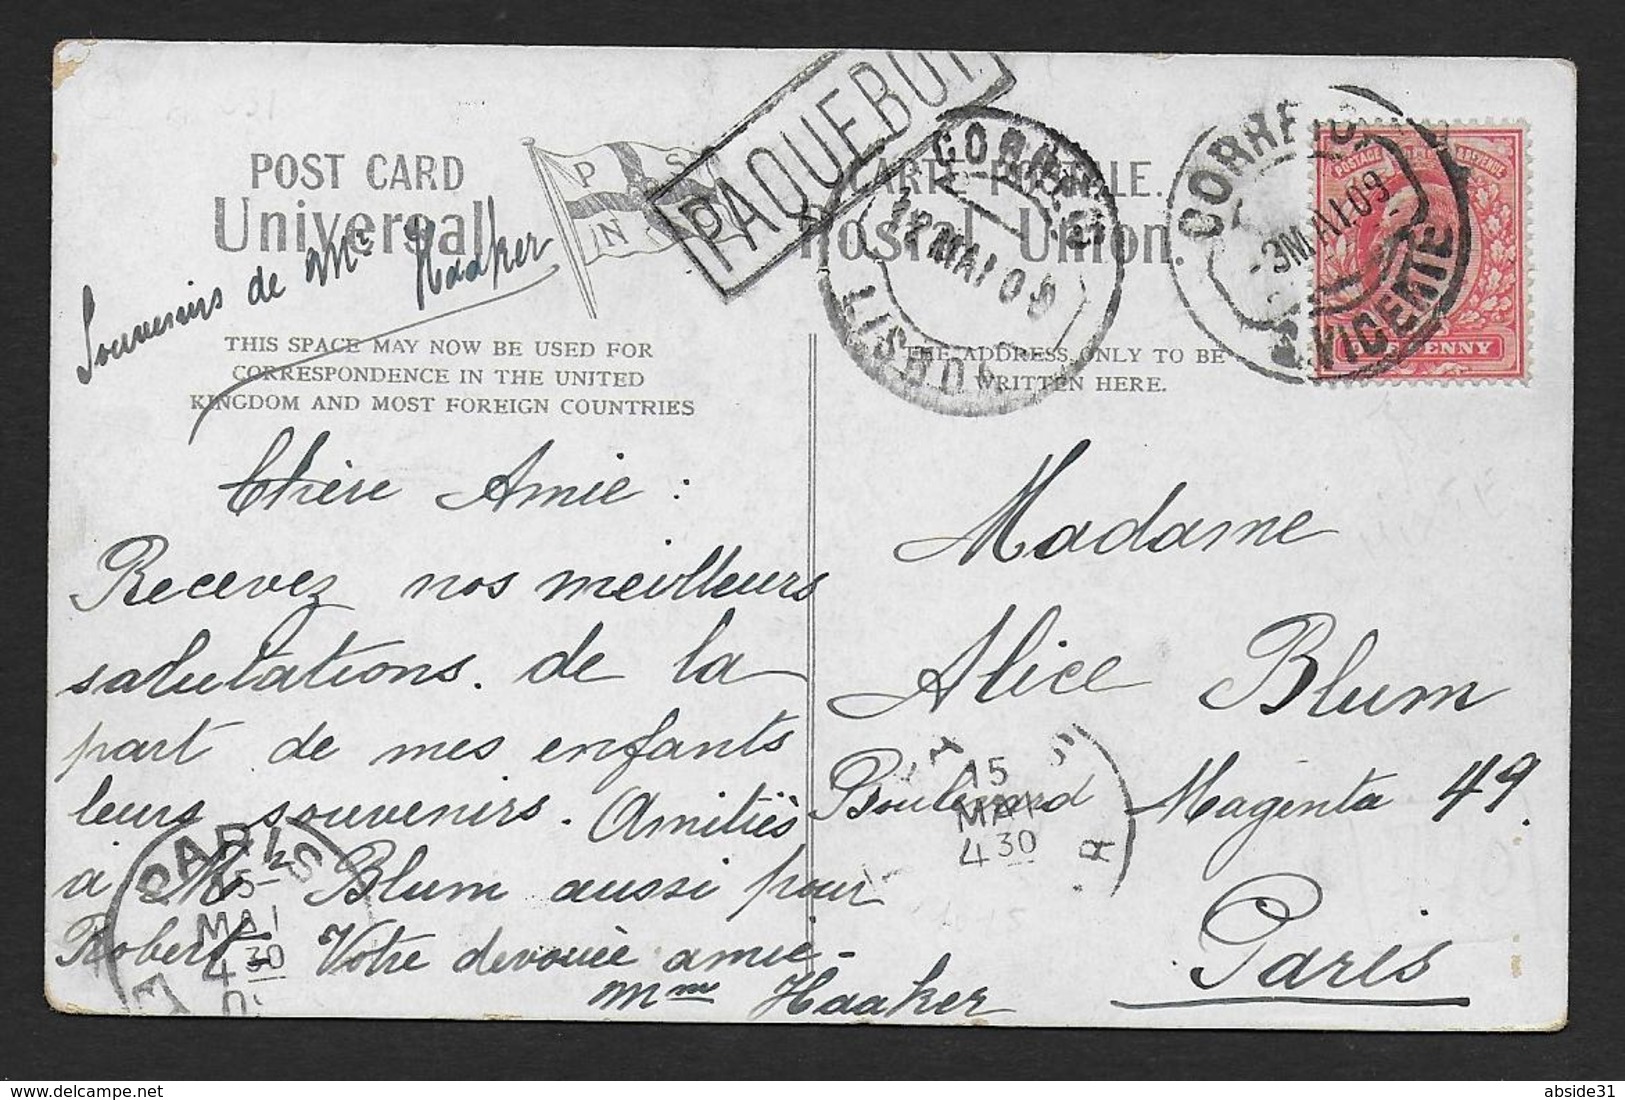 POST CARD
Universal
P S
N C
CARTE POSTALE.
Postal Union.
PAQUEBOT
CORREIO
12 MAI 09
LISBOA
CORREIO
3 MAI 09
S. VICENTE
POSTAGE REVENUE
ONE PENNY
Souvenirs de Mr Haaker
THIS SPACE MAY NOW BE USED FOR
CORRESPONDENCE IN THE UNITED
KINGDOM AND MOST FOREIGN COUNTRIES
THE ADDRESS ONLY TO BE
WRITTEN HERE.
Chère Amie :
Recevez nos meilleurs
salutations. de la
part de mes enfants
leurs souvenirs. Amitiés
à Mr Blum aussi pour
Robert - Votre devouée amie -
Mme Haaker
Madame
Alice Blum
Boulevard Magenta 49.
Paris
15
MAI
4 30
R
PARIS
15
MAI
4 30
abside31
delcampe.net